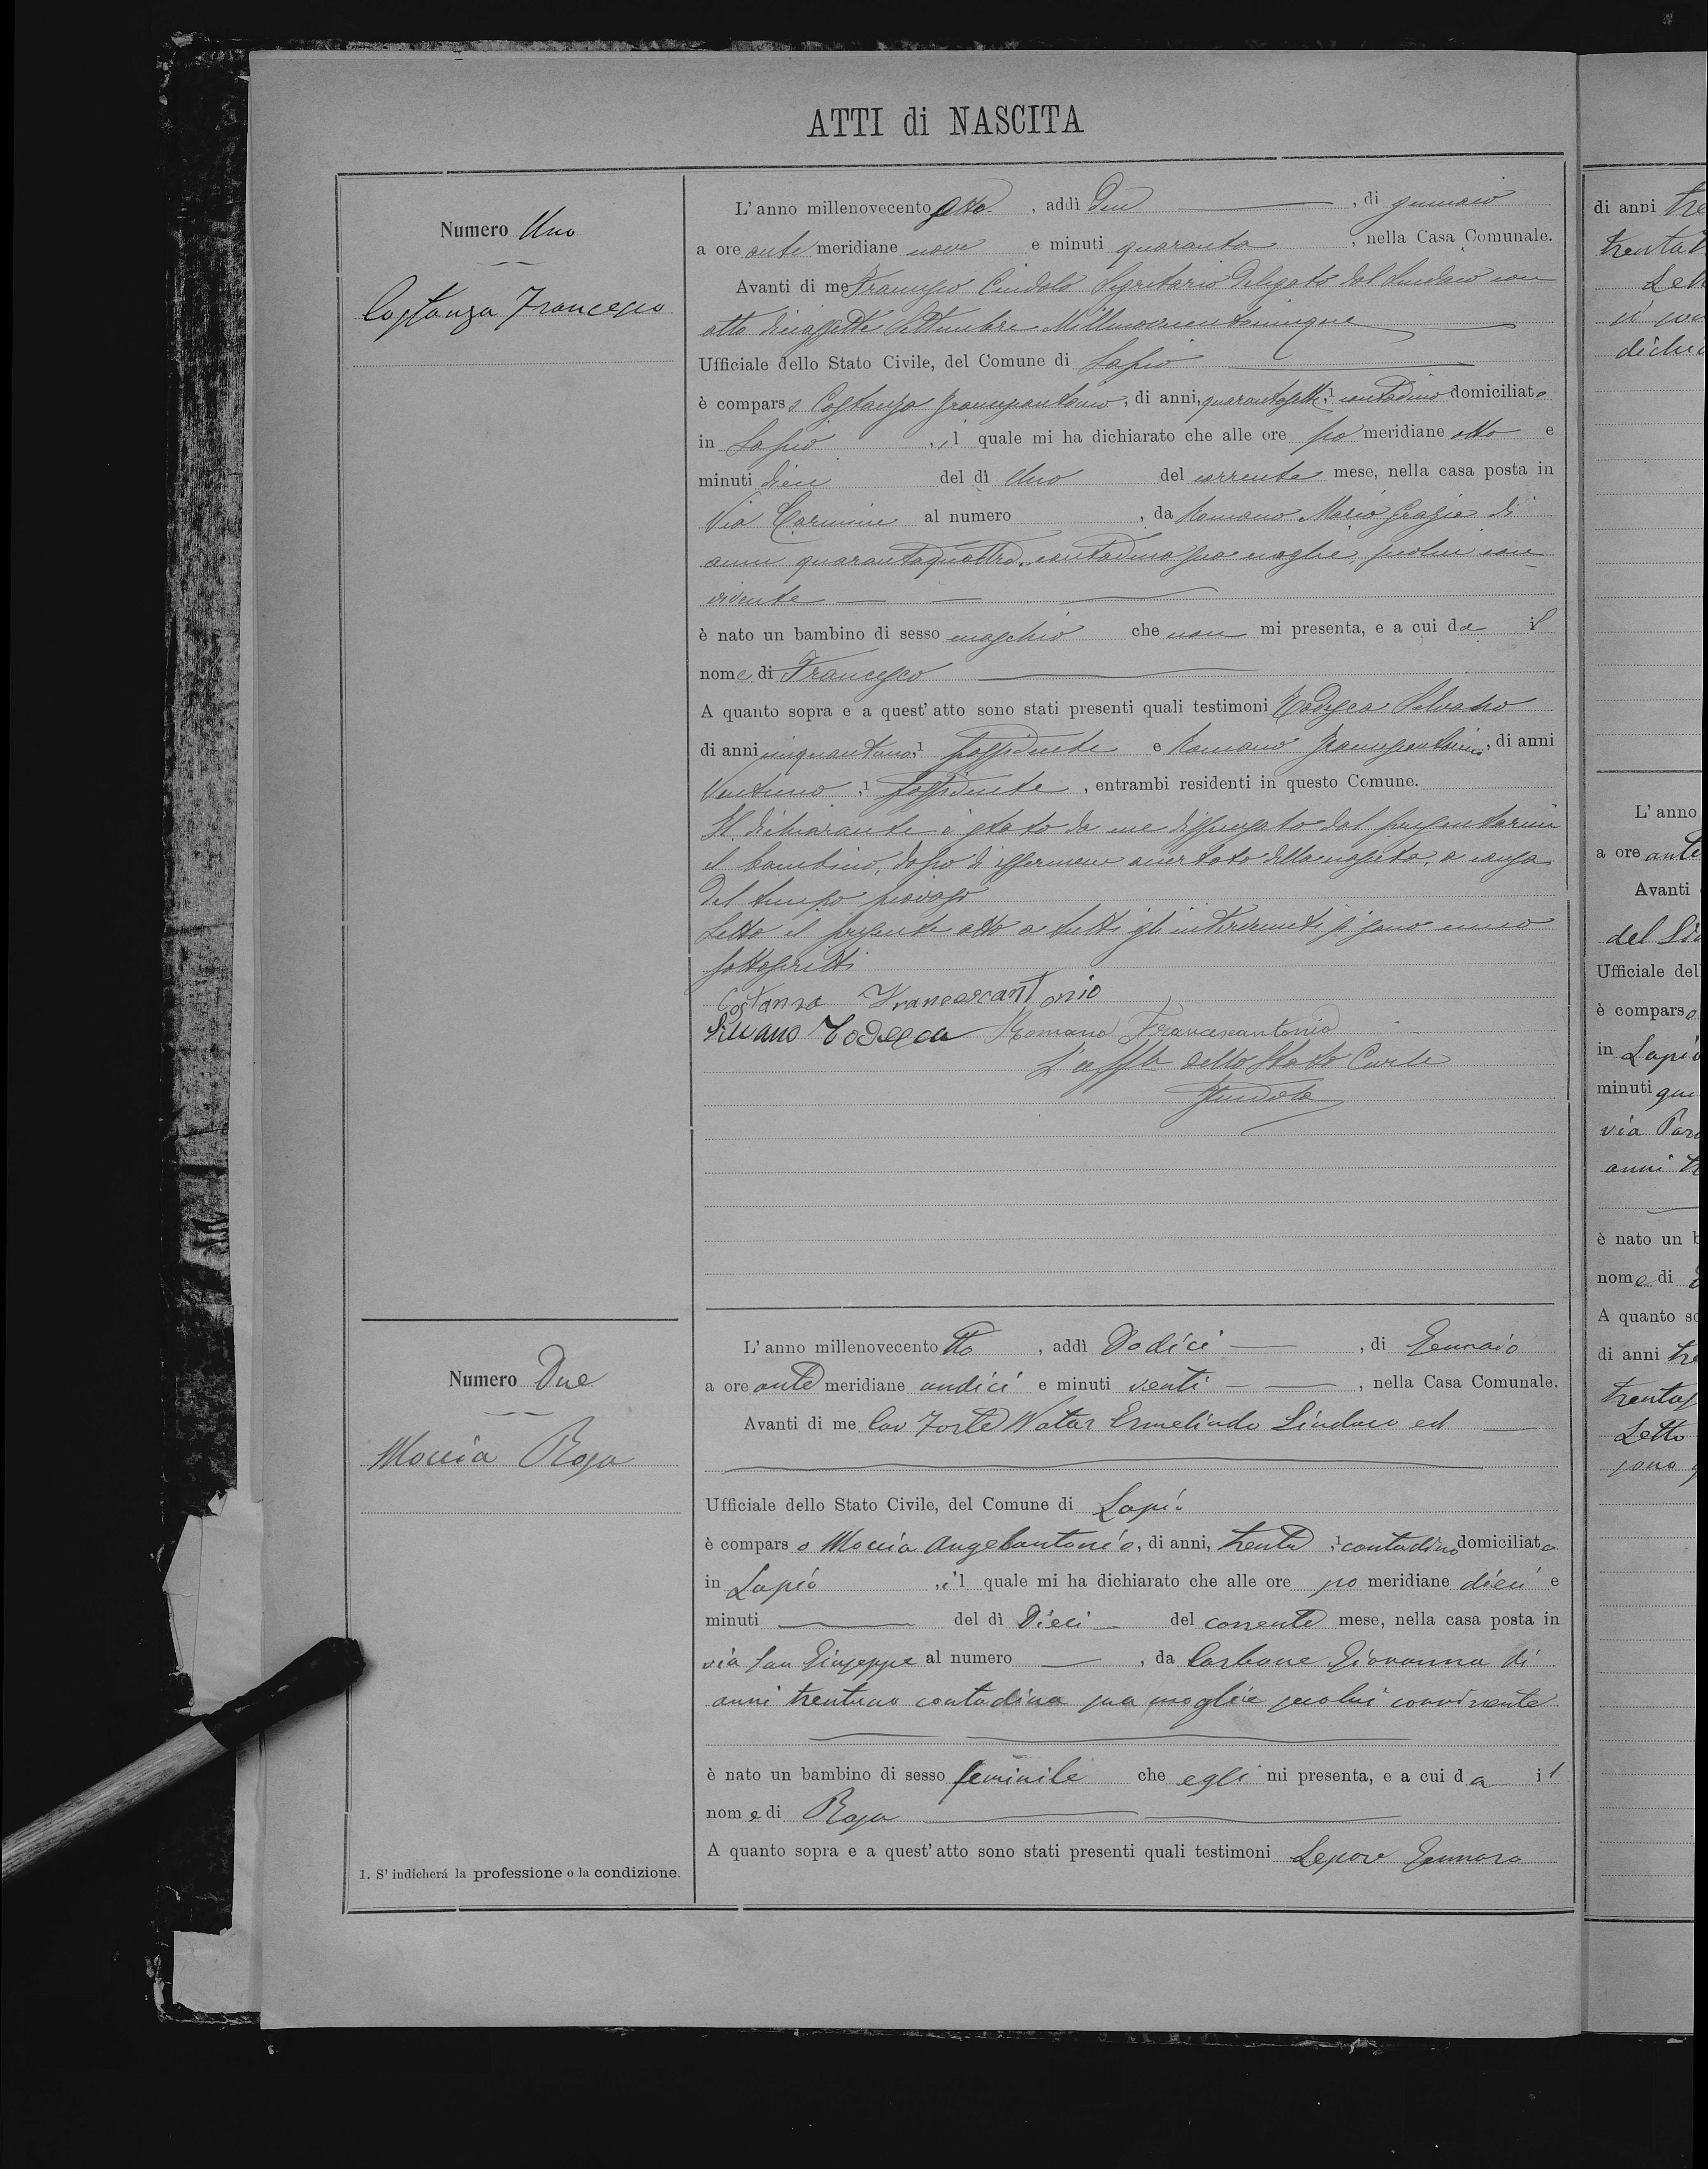 ATTI di NASCITA
Numero Uno
Costanza Francesco
L' anno millenovecento otto , addì Due , di gennaio
a ore ante meridiane nove e minuti quaranta , nella Casa Comunale.
Avanti di me Francesco Cindolo Segretario Delegato dal Sindaco con
atto diciassette Settembre Millenovecentocinque
Ufficiale dello Stato Civile, del Comune di Lapio
è comparso Costanza Francescantonio, di anni, quarantasette, 1 contadino domiciliato
in Lapio , il quale mi ha dichiarato che alle ore po meridiane otto e
minuti dieci del dì Uno del corrente mese, nella casa posta in
Via Carmine al numero , da Romano Maria Grazia di
anni quarantaquattro, contadina sua moglie, secolui con-
vivente
è nato un bambino di sesso maschio che non mi presenta, e a cui da il
nome di Francesco
A quanto sopra e a quest' atto sono stati presenti quali testimoni Todesca Silvano
di anni cinquantuno, 1 possidente e Romano Francescantonio, di anni
Ventuno , 1 possidente , entrambi residenti in questo Comune.
Il dichiarante è stato da me dispensato dal presentarmi
il bambino, dopo di essermene accertato della nascita, a causa
del tempo piovoso
Letto il presente atto a tutti gli intervenuti si sono meco
sottoscritti
Costanza Francescantonio
Silvano Todesca Romano Francescantonio
L'uffle dello Stato Civile
FCindolo
Numero Due
Moccia Rosa
L' anno millenovecento otto , addì Dodici , di Gennaio
a ore ante meridiane undici e minuti venti , nella Casa Comunale.
Avanti di me Cav Forte Notar Ermelindo Sindaco ed
Ufficiale dello Stato Civile, del Comune di Lapio
è comparso Moccia Angelantonio, di anni, trenta , 1 contadino domiciliato
in Lapio , il quale mi ha dichiarato che alle ore po meridiane dieci e
minuti del dì Dieci del corrente mese, nella casa posta in
via San Giuseppe al numero , da Carbone Giovanna di
anni trentuno contadina sua moglie secolui convivente
è nato un bambino di sesso feminile che egli mi presenta, e a cui da il
nome di Rosa
A quanto sopra e a quest' atto sono stati presenti quali testimoni Lepore Gennaro
1. S' indicherá la professione o la condizione.
di anni
L' anno
a ore ante
Avanti
Ufficiale del
è comparso
in Lapio
minuti
via
anni
è nato un
nome di
A quanto
di anni
Letto